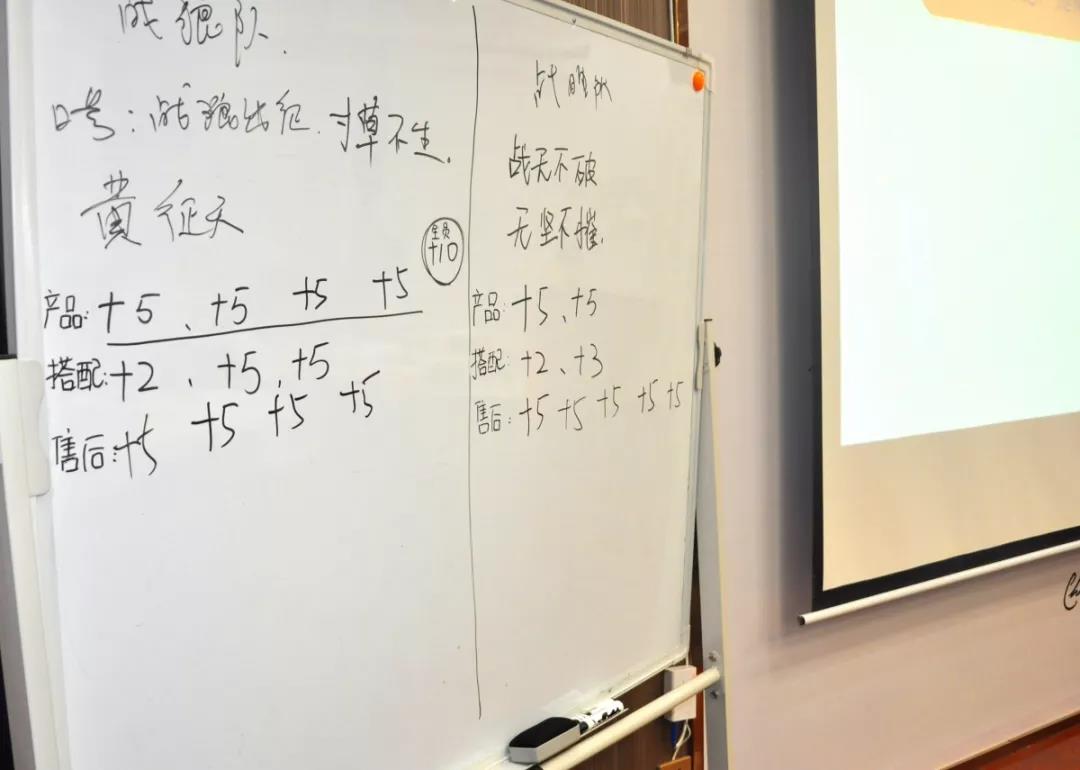 战狼队.
口号:战狼出征.寸草不生.
黄征天
全员
+10
产品:+5、+5 +5 +5
搭配:+2、+5、+5
售后:+5 +5 +5 +5
战胜队
战无不破
无坚不摧.
产品:+5、+5
搭配:+2、+3
售后:+5 +5 +5 +5 +5